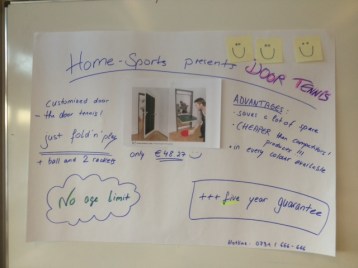 Home-Sports presents DOOR TENNIS
Customized door
- the door tennis!
just fold'n'play
+ ball and 2 rackets
only €48.27
ADVANTAGES:
- saves a lot of space
- CHEAPER than competitors'
products!!!
- in every colour available
No age limit
+++ five year guarantee
Hotline: